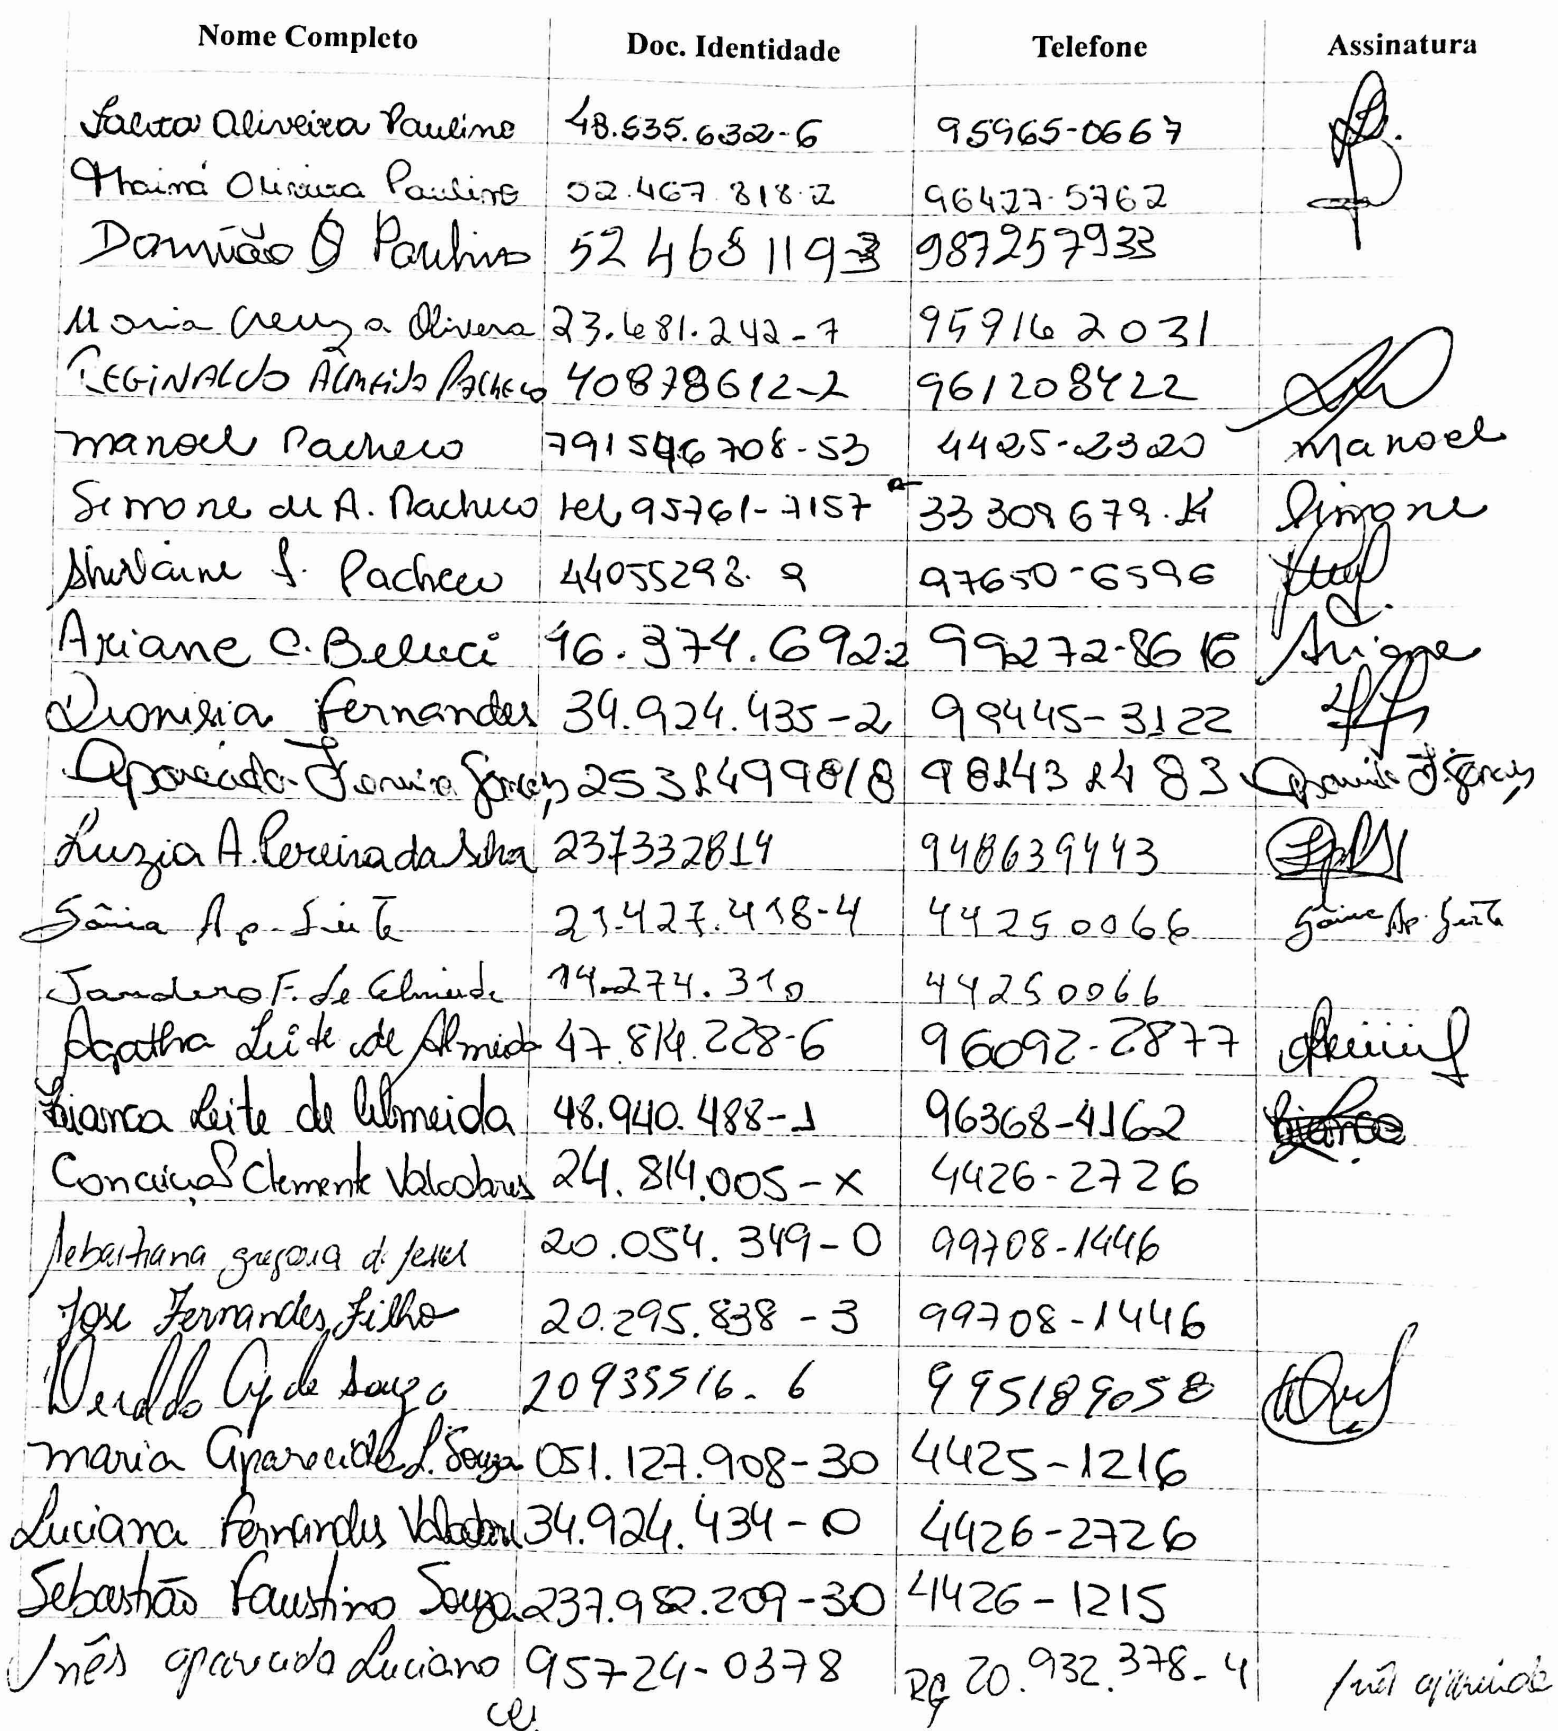 Nome Completo Doc. Identidade Telefone Assinatura
Oliveira Paulino 48.535.632-6 95965-0667
Thainá Oliveira Paulino 52.467.818-2 96427-5762
Damião O Paulino 52 468 119-3 987257933
Maria Creuza Olivera 23.681.242-7 959162031
REGINALDO ALMEIDA PACHECO 40878612-2 961208422
Manoel Pacheco 791546708-53 4425-2320 Manoel
Simone de A. Pacheco tel 95761-7157 33309679. Simone
Shirlaine S. Pacheco 44055298.9 97650-6596
Ariane C. Beluci 46.374.692-2 99272-8616 Ariane
Dionisia Fernandes 34.924.435-2 99445-3122
Aparecida 981431483
Luzia A. Pereira da Silva 237332814 948639443
Sônia Ap. Leite 21.427.418-4 44250066 Sônia Ap. Leite
F. de Almeida 14.274.310 44250066
Agatha Leite de Almeida 47.814.228-6 96092-2877
Bianca Leite de Almeida 48.940.488-1 96368-4162
Clemente Valadares 24.814.005-X 4426-2726
Sebastiana 20.054.349-0 99708-1446
Jose Fernandes Filho 20.295.838-3 99708-1446
de Souza 20935516-6 995189058
Maria Aparecida L. Souza 051.127.908-30 4425-1216
Luciana Fernandes 34.924.434-0 4426-2726
Sebastião Faustino Souza 237.982.209-30 4426-1215
Inês aparecida Luciano 95724-0378 RG 20.932.378-4 Inês aparecida
cel